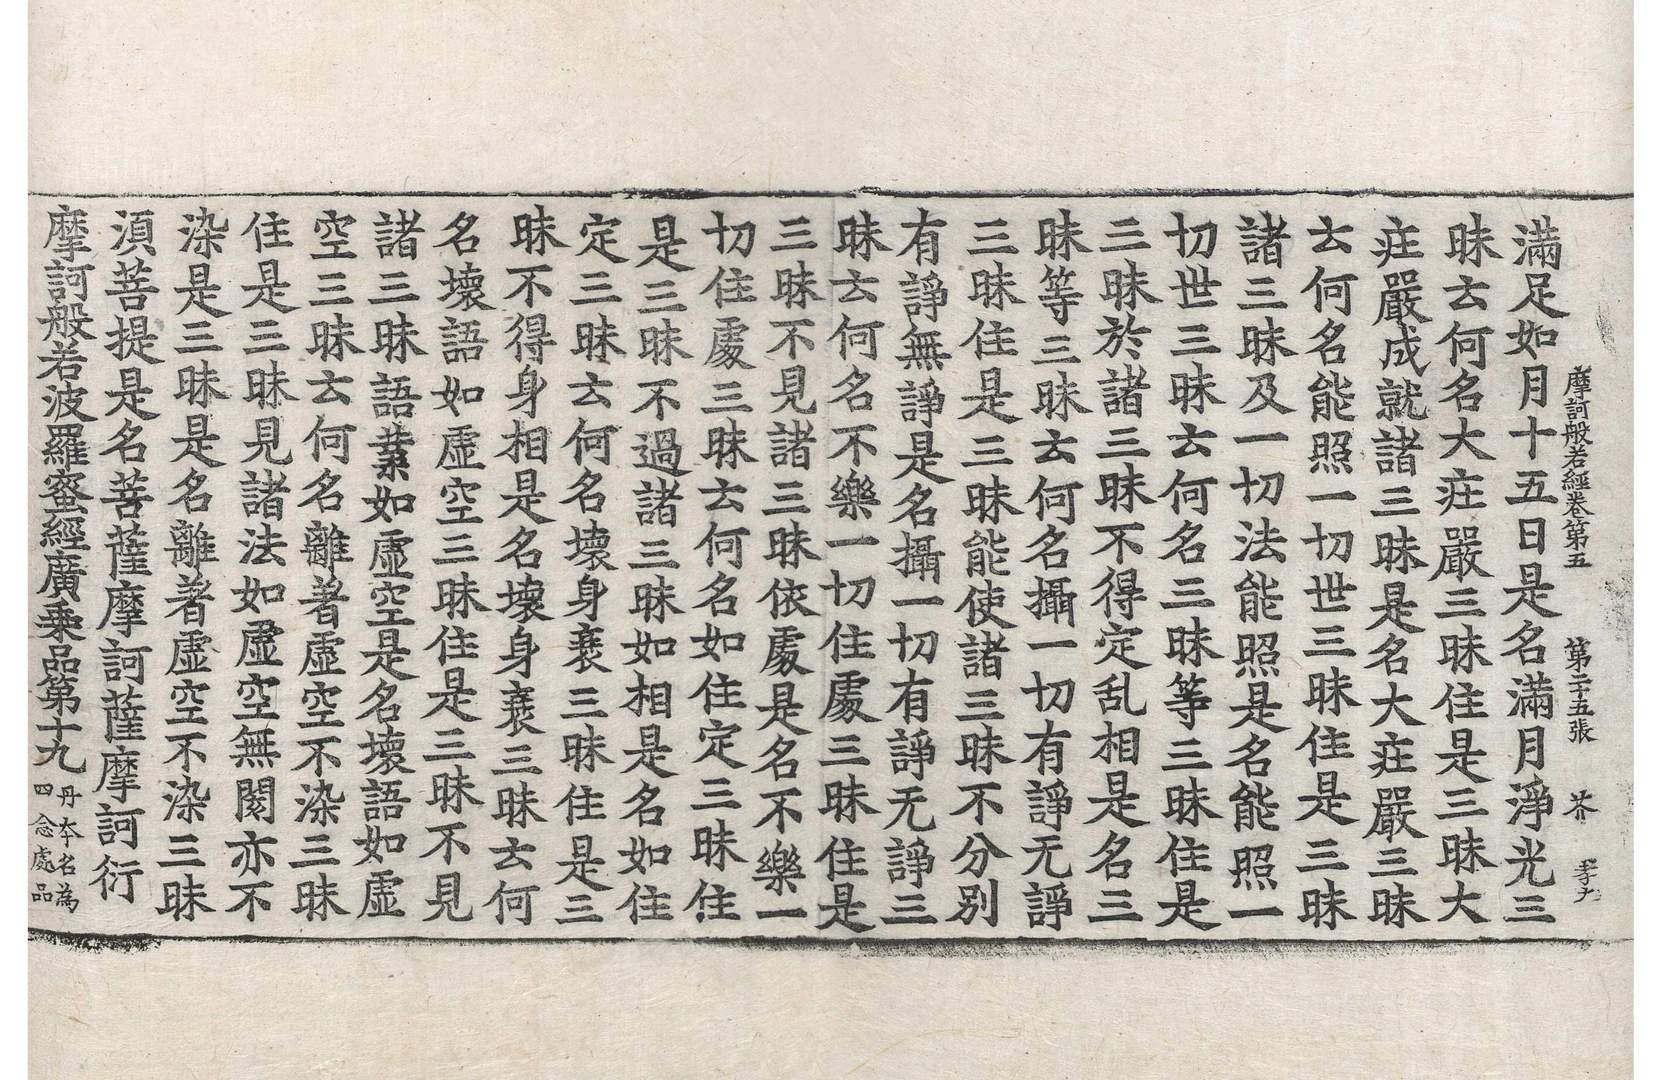 摩訶般若經卷第五　第二十五張　芥
滿足如月十五日是名滿月淨光三
昧云何名大莊嚴三昧住是三昧大
莊嚴成就諸三昧是名大莊嚴三昧
云何名能照一切世三昧住是三昧
諸三昧及一切法能照是名能照一
切世三昧云何名三昧等三昧住是
三昧於諸三昧不得定乱相是名三
昧等三昧云何名攝一切有諍无諍
三昧住是三昧能使諸三昧不分別
有諍無諍是名攝一切有諍无諍三
昧云何名不樂一切住處三昧住是
三昧不見諸三昧依處是名不樂一
切住處三昧云何名如住定三昧住
是三昧不過諸三昧如相是名如住
定三昧云何名壞身衰三昧住是三
昧不得身相是名壞身衰三昧云何
名壞語如虛空三昧住是三昧不見
諸三昧語業如虛空是名壞語如虛
空三昧云何名離著虛空不染三昧
住是三昧見諸法如虛空無閡亦不
染是三昧是名離著虛空不染三昧
須菩提是名菩薩摩訶薩摩訶衍
摩訶般若波羅蜜經廣乘品第十九 丹本名為四念處品